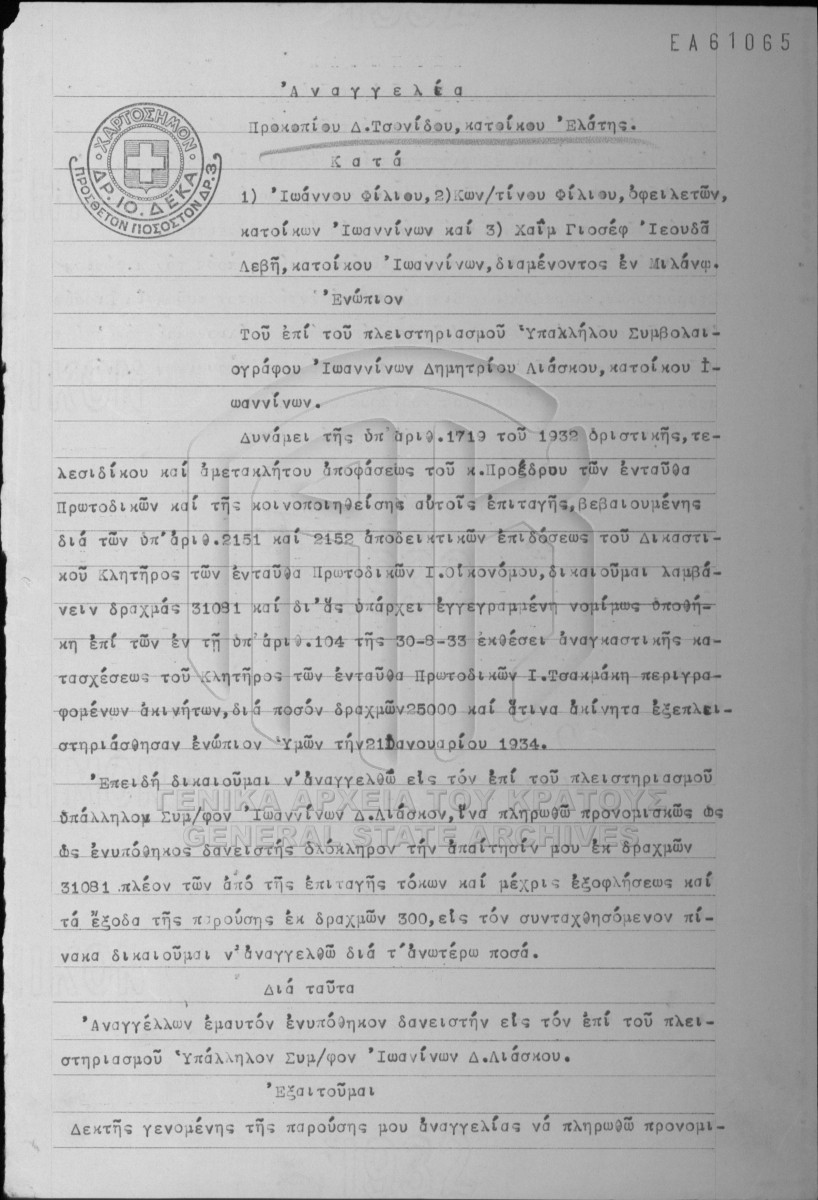 ΕΑ61065
Ἀναγγελέα
Προκοπίου Δ.Τσονίδου,κατοίκου Ἐλάτης.
Κατά
1) Ἰωάννου Φίλιου,2)Κων/τίνου Φίλιου,ὀφειλετῶν,
κατοίκων Ἰωαννίνων καί 3) Χαΐμ Γιοσέφ Ἰεουδᾶ
Λεβῆ,κατοίκου Ἰωαννίνων,διαμένοντος ἐν Μιλάνῳ.
Ἐνώπιον
Τοῦ ἐπί τοῦ πλειστηριασμοῦ Ὑπαλλήλου Συμβολαι-
ογράφου Ἰωαννίνων Δημητρίου Λιάσκου,κατοίκου Ἰ-
ωαννίνων.
Δυνάμει τῆς ὑπ'ἀριθ.1719 τοῦ 1932 ὁριστικῆς,τε-
λεσιδίκου καί ἀμετακλήτου ἀποφάσεως τοῦ κ.Προέδρου τῶν ἐνταῦθα
Πρωτοδικῶν καί τῆς κοινοποιηθείσης αὐτοῖς ἐπιταγῆς,βεβαιουμένης
διά τῶν ὑπ'ἀριθ.2151 καί 2152 ἀποδεικτικῶν ἐπιδόσεως τοῦ Δικαστι-
κοῦ Κλητῆρος τῶν ἐνταῦθα Πρωτοδικῶν Ι.Οἰκονόμου,δικαιοῦμαι λαμβά-
νειν δραχμάς 31081 καί δι'ἅς ὑπάρχει ἐγγεγραμμένη νομίμως ὑποθή-
κη ἐπί τῶν ἐν τῇ ὑπ'ἀριθ.104 τῆς 30-8-33 ἐκθέσει ἀναγκαστικῆς κα-
τασχέσεως τοῦ Κλητῆρος τῶν ἐνταῦθα Πρωτοδικῶν Ι.Τσακμάκη περιγρα-
φομένων ἀκινήτων,διά ποσόν δραχμῶν25000 καί ἅτινα ἀκίνητα ἐξεπλει-
στηριάσθησαν ἐνώπιον Ὑμῶν τήν21Ιανουαρίου 1934.
Ἐπειδή δικαιοῦμαι ν'ἀναγγελθῶ εἰς τόν ἐπί τοῦ πλειστηριασμοῦ
ὑπάλληλον Συμ/φον Ἰωαννίνων Δ.Λιάσκον,ἵνα πληρωθῶ προνομιακῶς ὡς
ὡς ἐνυπόθηκος δανειστής ὁλόκληρον τήν ἀπαίτησίν μου ἐκ δραχμῶν
31081 πλέον τῶν ἀπό τῆς ἐπιταγῆς τόκων καί μέχρις ἐξοφλήσεως καί
τά ἔξοδα τῆς παρούσης ἐκ δραχμῶν 300,εἰς τόν συνταχθησόμενον πί-
νακα δικαιοῦμαι ν'ἀναγγελθῶ διά τ'ἀνωτέρω ποσά.
Διά ταῦτα
Ἀναγγέλλων ἐμαυτόν ἐνυπόθηκον δανειστήν εἰς τόν ἐπί τοῦ πλει-
στηριασμοῦ Ὑπάλληλον Συμ/φον Ἰωανίνων Δ.Λιάσκου.
Ἐξαιτοῦμαι
Δεκτῆς γενομένης τῆς παρούσης μου ἀναγγελίας νά πληρωθῶ προνομι-
ΧΑΡΤΟΣΗΜΟΝ
ΔΡ.10.ΔΕΚΑ
ΠΡΟΣΘΕΤΟΝ ΠΟΣΟΣΤΟΝ ΔΡ.3
ΓΕΝΙΚΑ ΑΡΧΕΙΑ ΤΟΥ ΚΡΑΤΟΥΣ
GENERAL STATE ARCHIVES